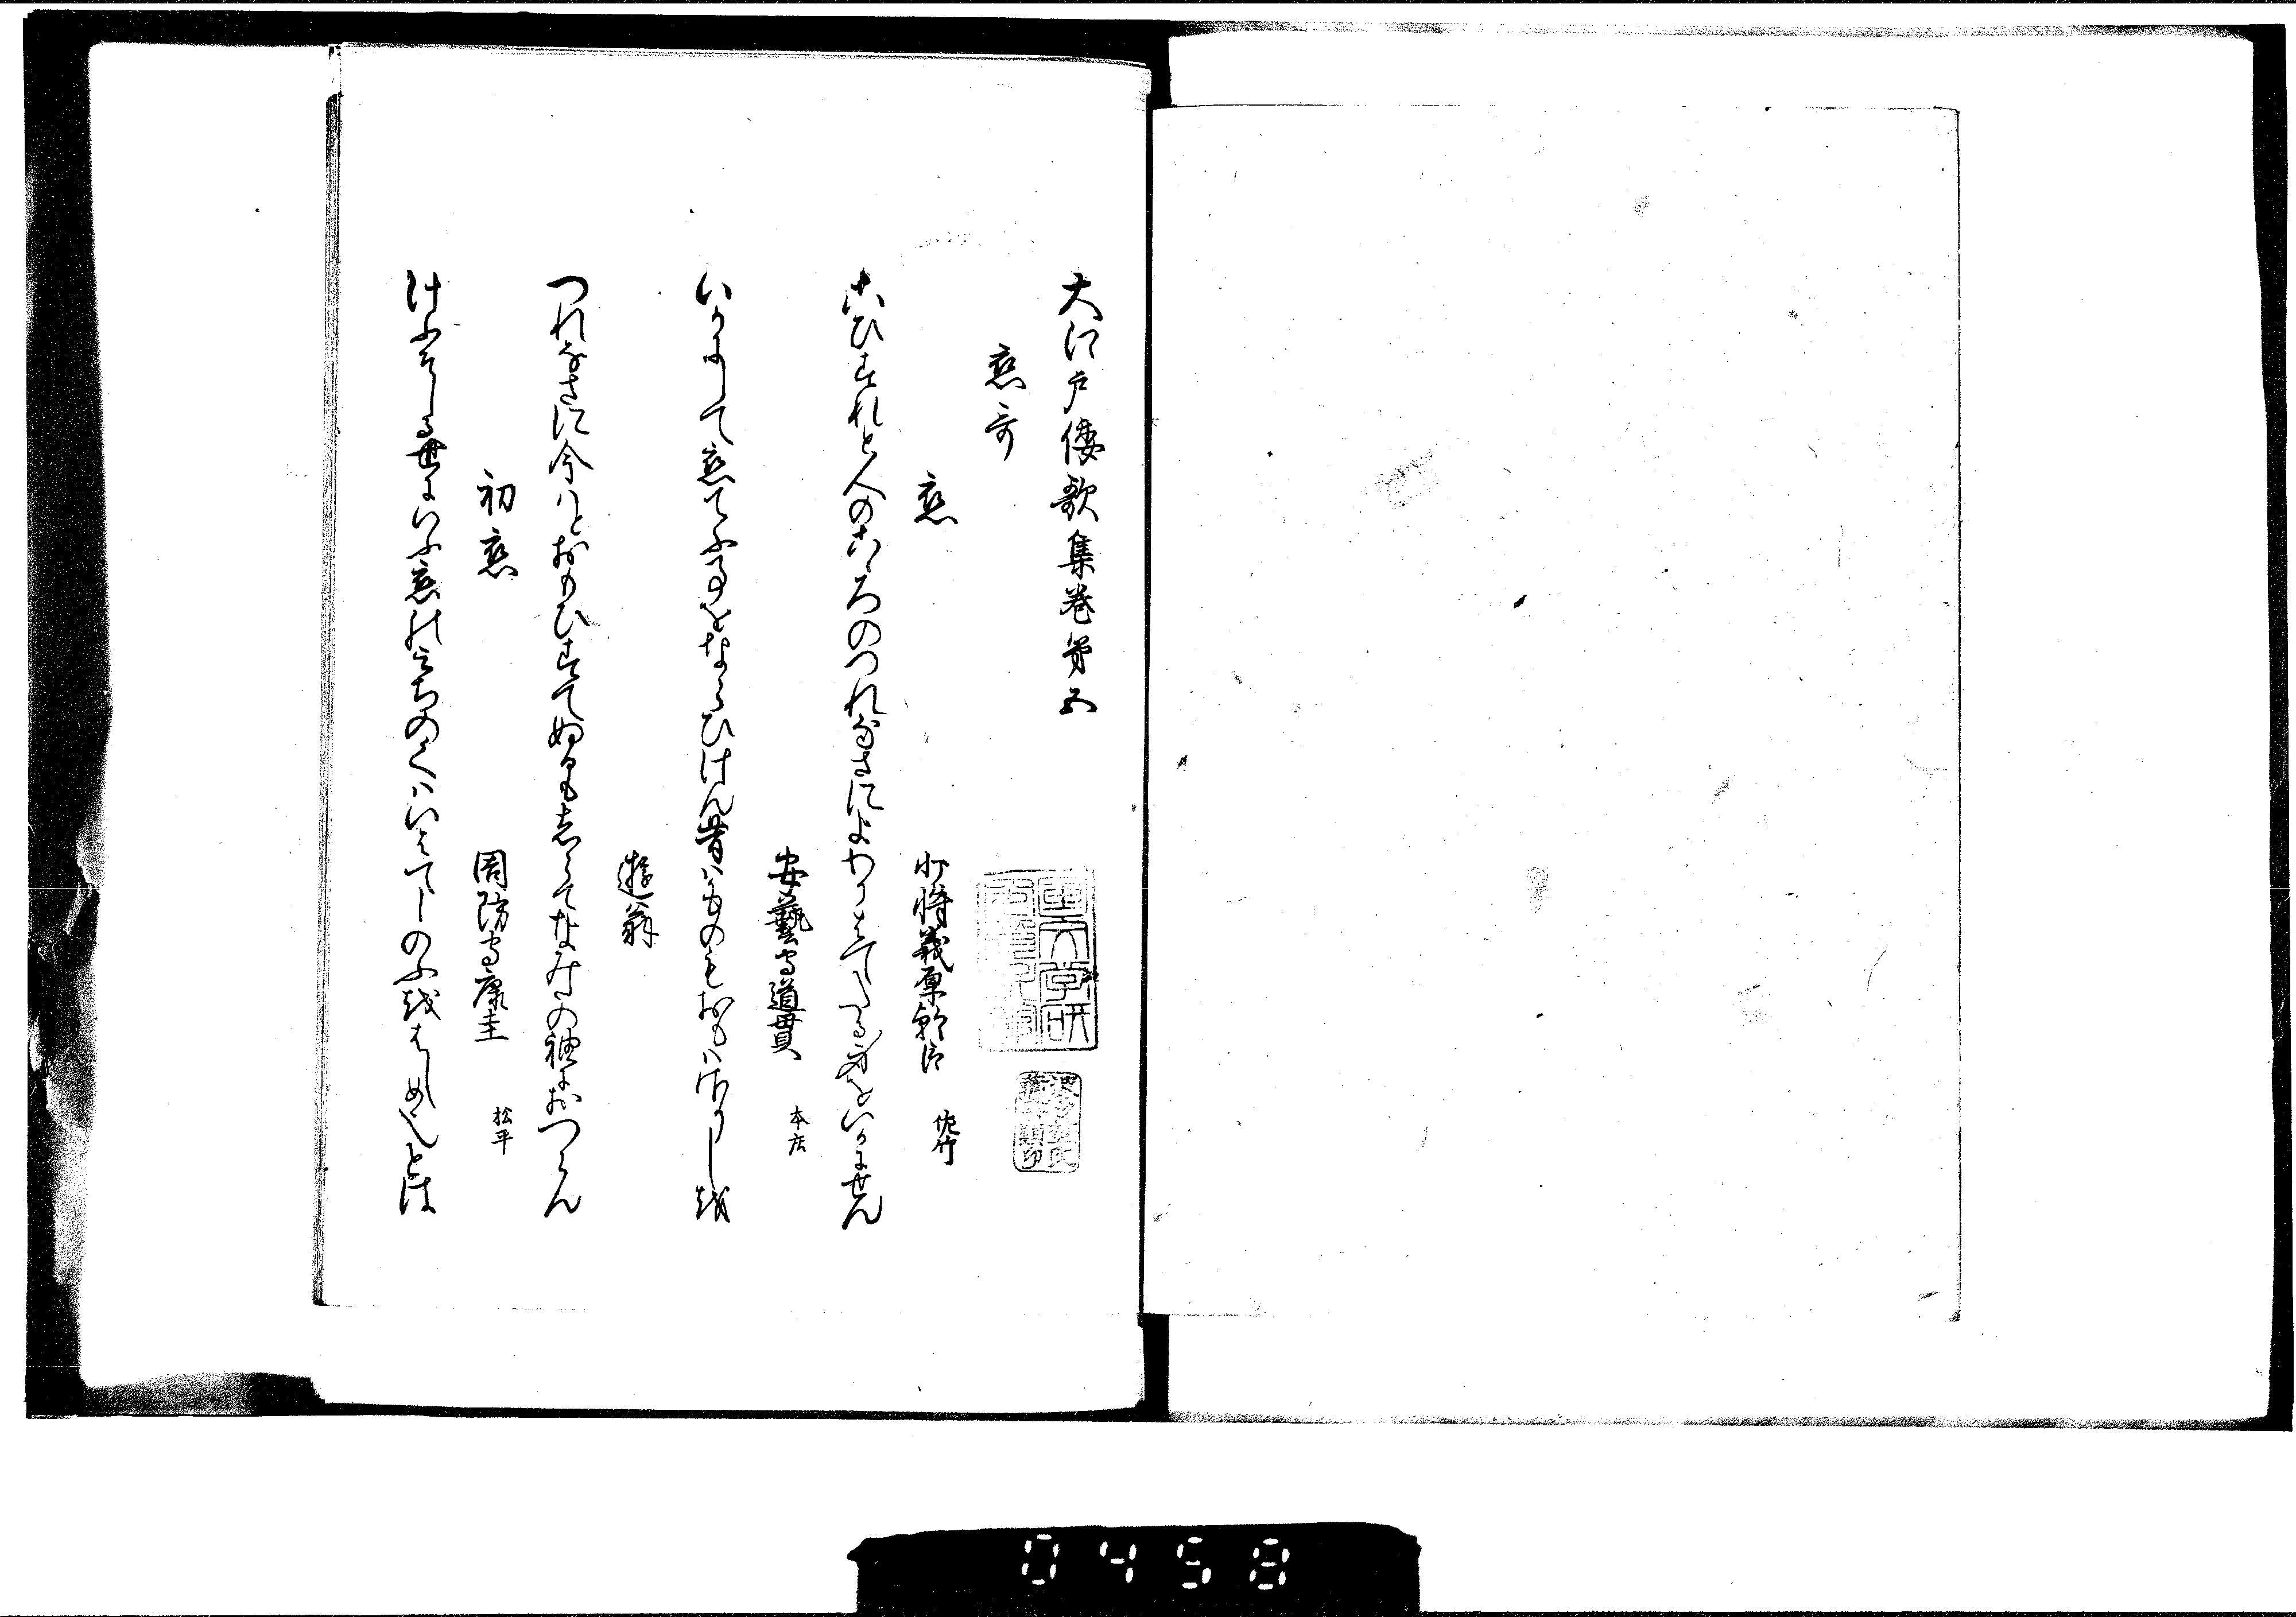 大江戸倭歌集巻第五
恋哥
恋
少将義厚朝臣 佐竹
こひすれと人のこゝろのつれなさによわりはてたる身をいかにせん
安藝守道貫 本庄
いかにして恋てふ事をならひけん昔はものもおもはさりしを
遊翁
つれなさに今はとおもひすてぬるもしらてなみたの袖におつらん
初恋
周防守康圭 松平
けふそしる世にいふ恋のみちのくはいはてしのふをはしめ也とは
0458